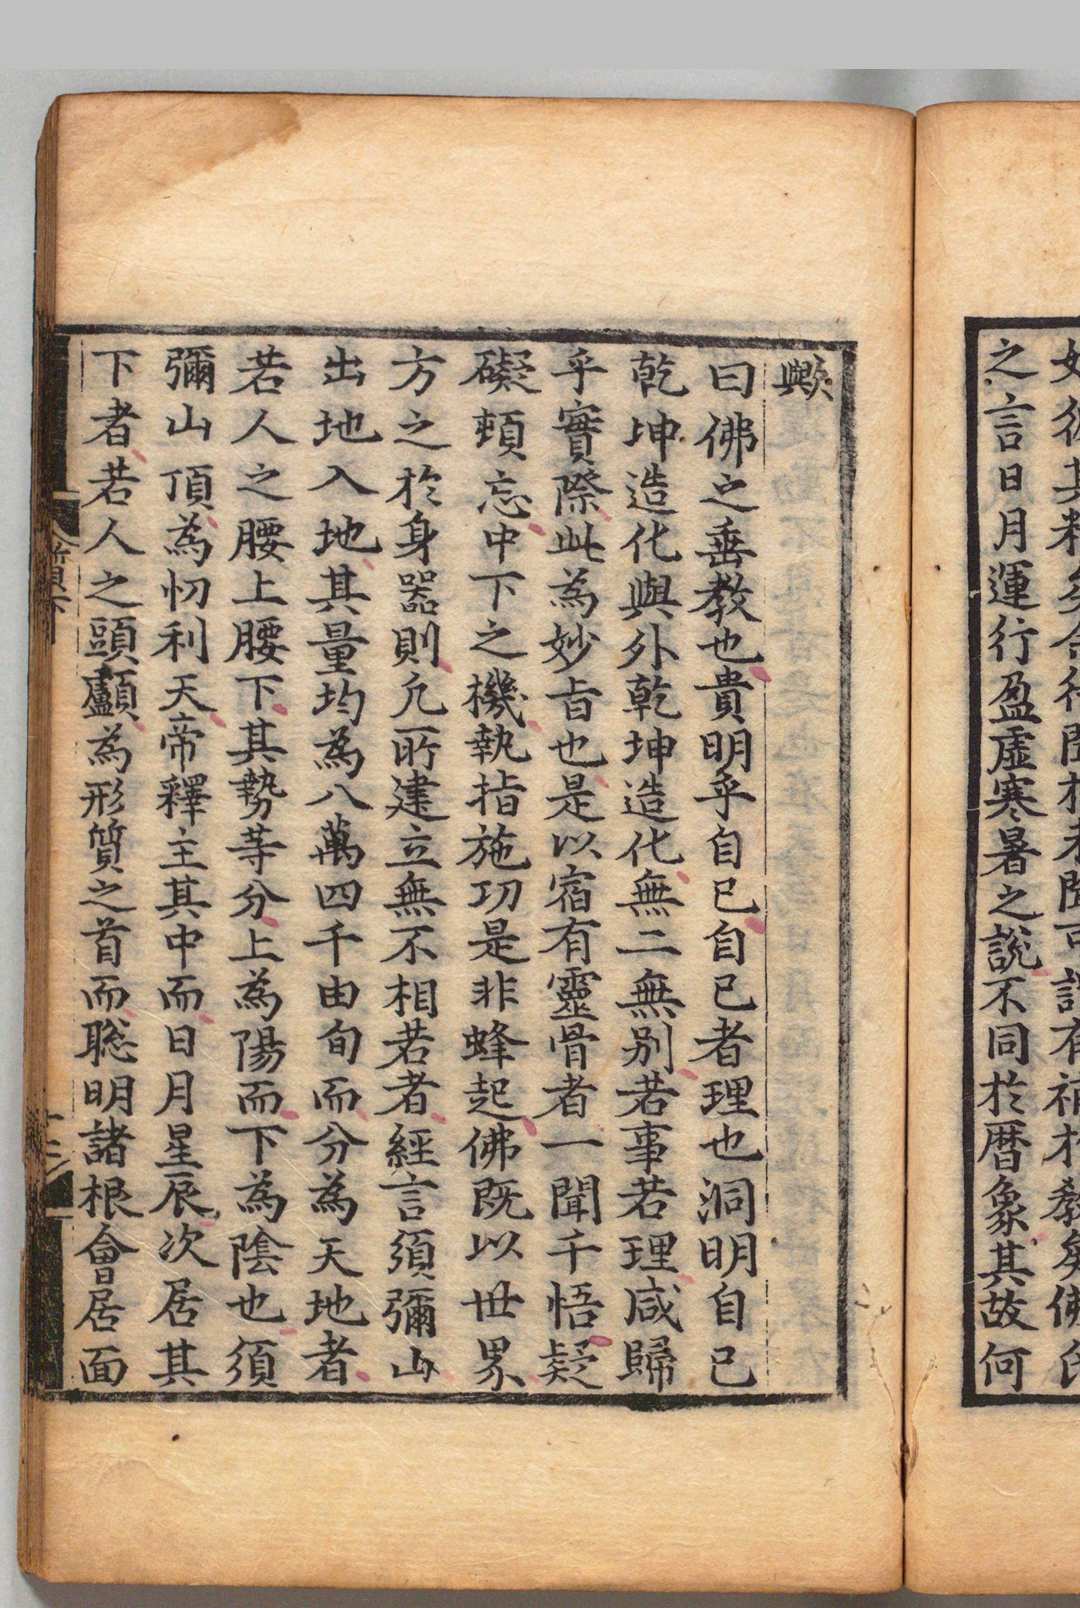 之言日月運行盈虛寒暑之說不同於曆象其故何
歟
曰佛之垂教也貴明乎自已自已者理也洞明自已
乾坤造化與外乾坤造化無二無別若事若理咸歸
乎實際此為妙旨也是以宿有靈骨者一聞千悟疑
礙頓忘中下之機執指施功是非蜂起佛既以世界
方之於身器則凢所建立無不相若者經言須彌山
出地入地其量均為八萬四千由旬而分為天地者
若人之腰上腰下其勢等分上為陽而下為陰也須
彌山頂為忉利天帝釋主其中而日月星辰次居其
下者若人之頭顱為形質之首而聡明諸根會居面